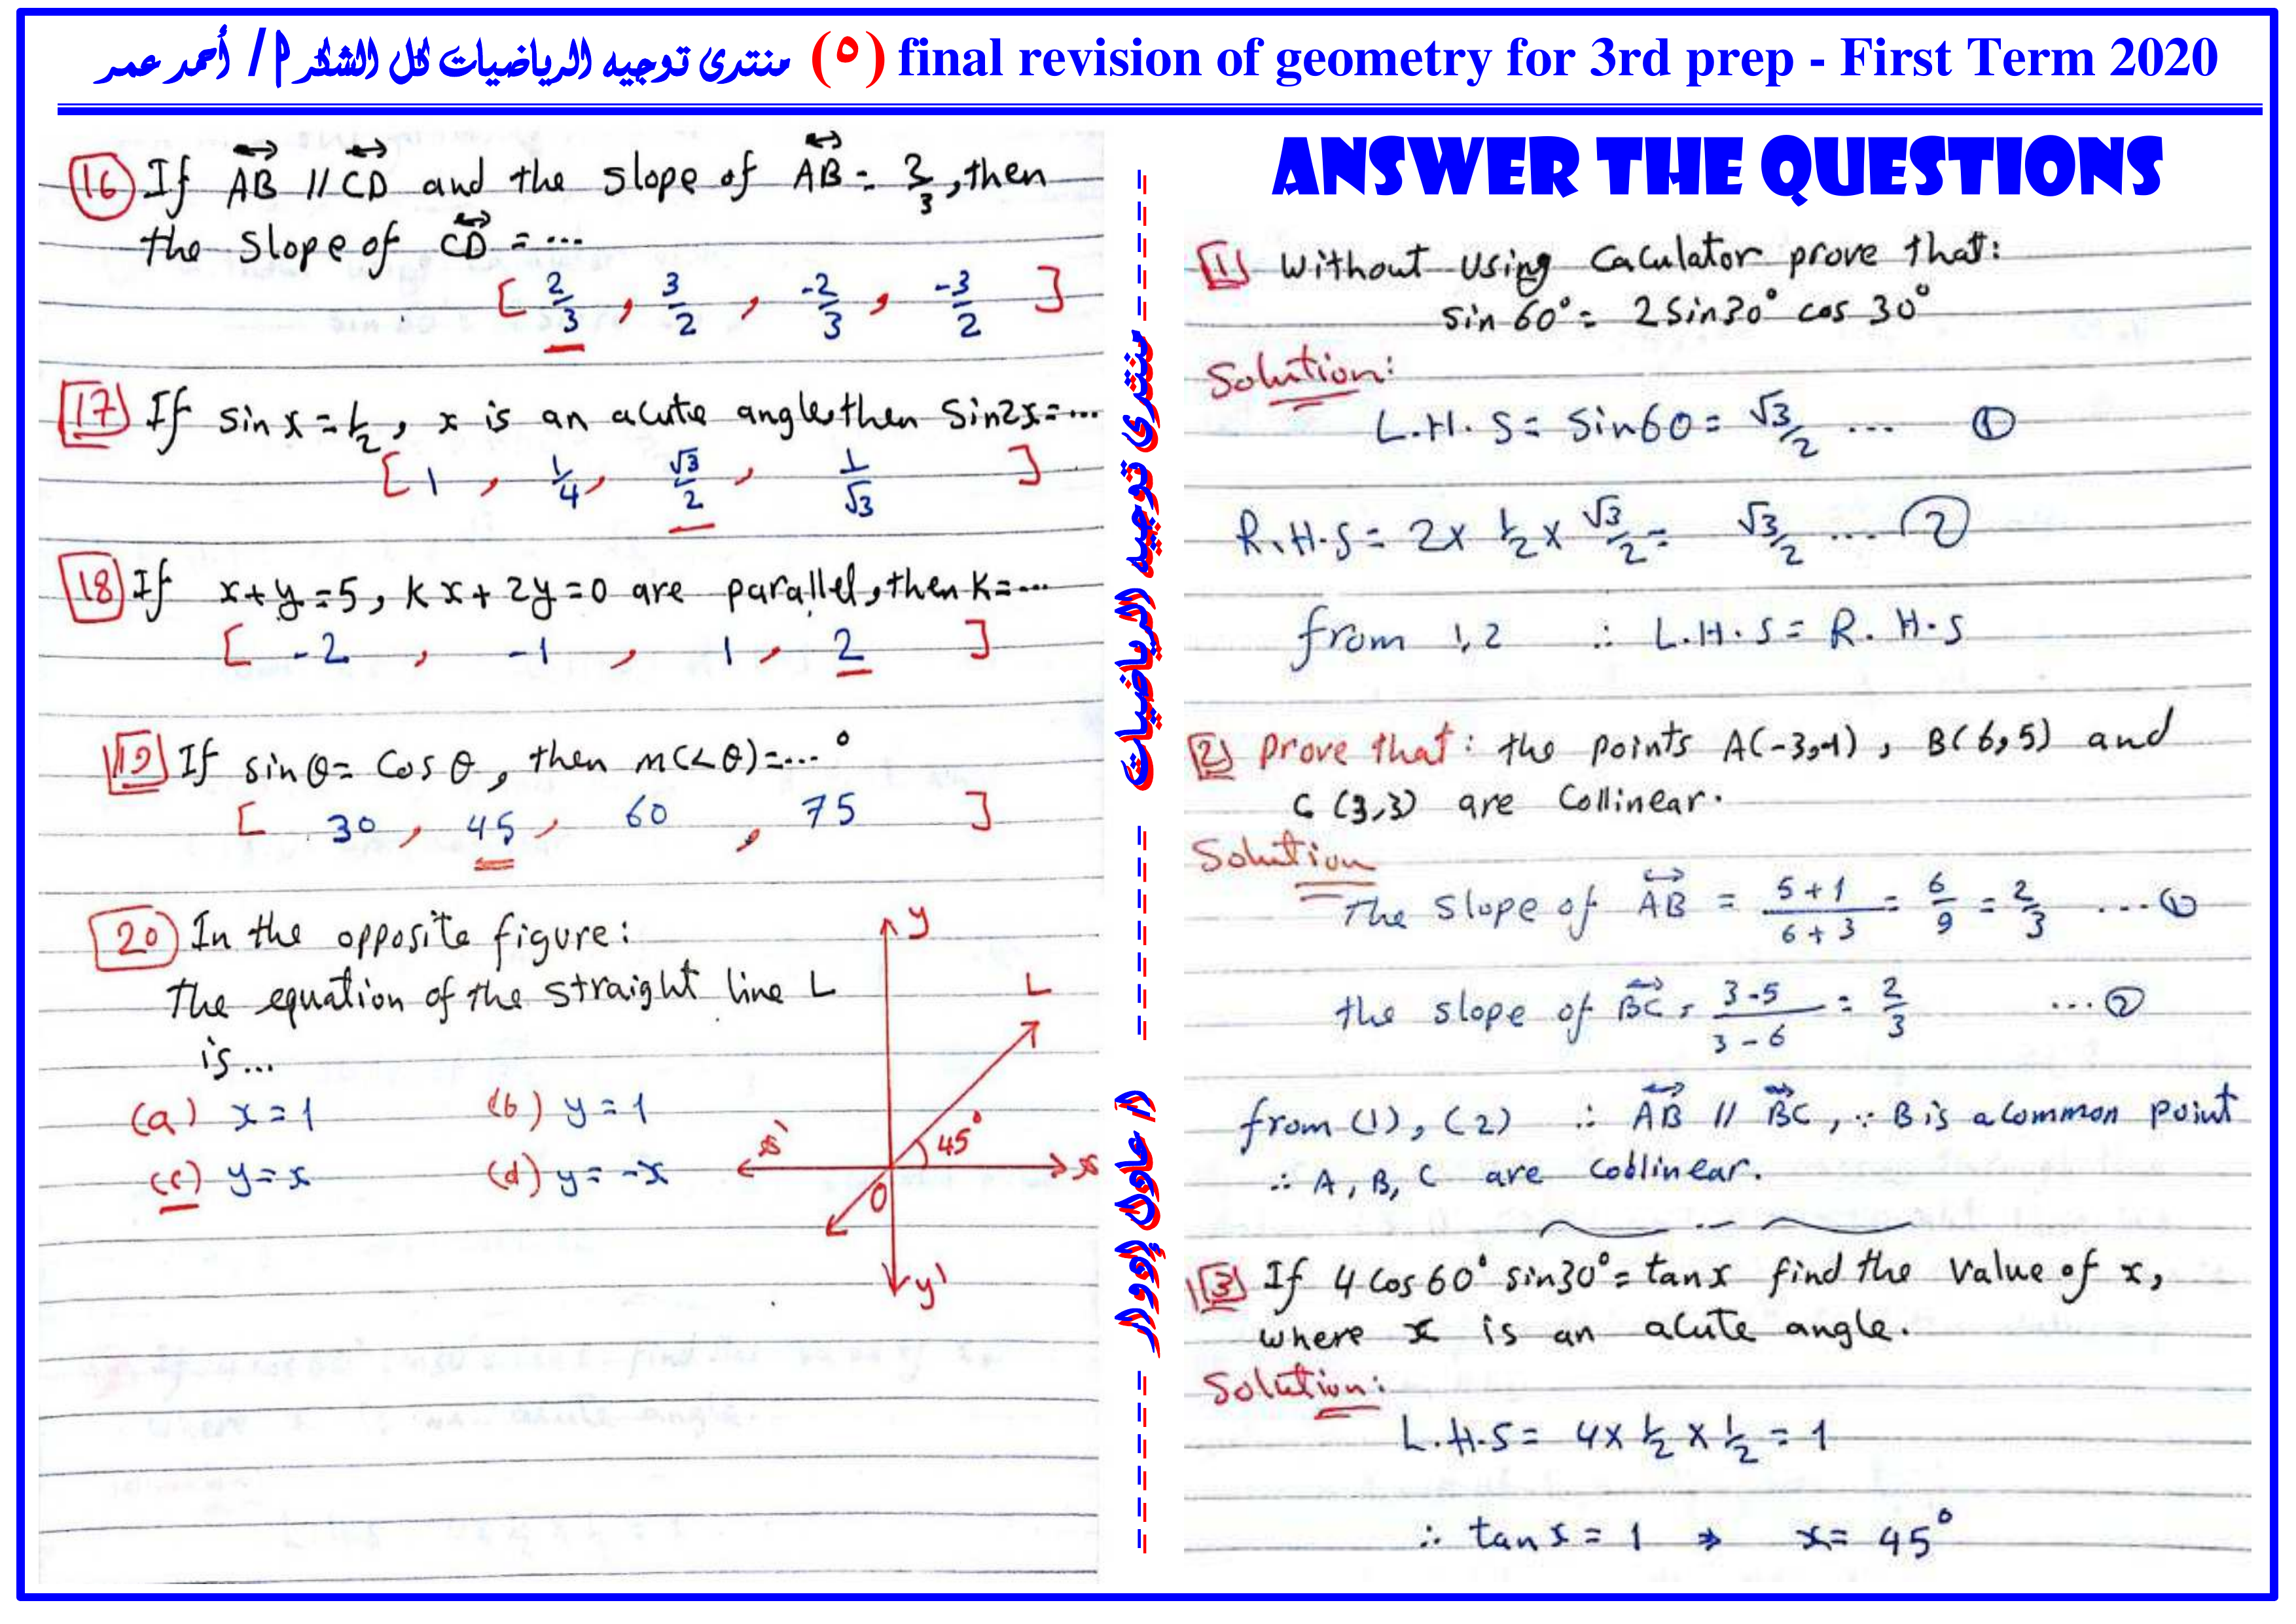 منتدى توجيه الرياضيات كل الشكر أ / أحمد عمر (٥) final revision of geometry for 3rd prep - First Term 2020
16 If AB // CD and the slope of AB = 2/3, then
the slope of CD = ...
[ 2/3 , 3/2 , -2/3 , -3/2 ]
17 If sin x = 1/2 , x is an acute angle, then Sin2x = ...
[ 1 , 1/4 , √3/2 , 1/√3 ]
18 If x + y = 5 , k x + 2y = 0 are parallel, then k = ...
[ -2 , -1 , 1 , 2 ]
19 If sin θ = Cos θ , then m(<θ) = ... °
[ 30 , 45 , 60 , 75 ]
20 In the opposite figure:
The equation of the straight line L
is ...
(a) x = 1 (b) y = 1
(c) y = x (d) y = -x
y
L
45°
x'
x
O
y'
منتدى توجيه الرياضيات
أ/ عادل إدوار
ANSWER THE QUESTIONS
1 Without Using Caculator prove that:
sin 60° = 2 Sin30° cos 30°
Solution:
L.H.S = Sin60 = √3/2 ... 1
R.H.S = 2 x 1/2 x √3/2 = √3/2 ... 2
from 1, 2 ∴ L.H.S = R.H.S
2 prove that: the points A(-3,-1) , B(6,5) and
C (3,3) are Collinear.
Solution
The slope of AB = 5+1/6+3 = 6/9 = 2/3 ... 1
the slope of BC = 3-5/3-6 = 2/3 ... 2
from (1), (2) ∴ AB // BC, ∵ B is a Common point
∴ A, B, C are collinear.
3 If 4 Cos 60° sin30° = tan x find the value of x,
where x is an acute angle.
Solution:
L.H.S = 4 x 1/2 x 1/2 = 1
∴ tan x = 1 ⇒ x = 45°